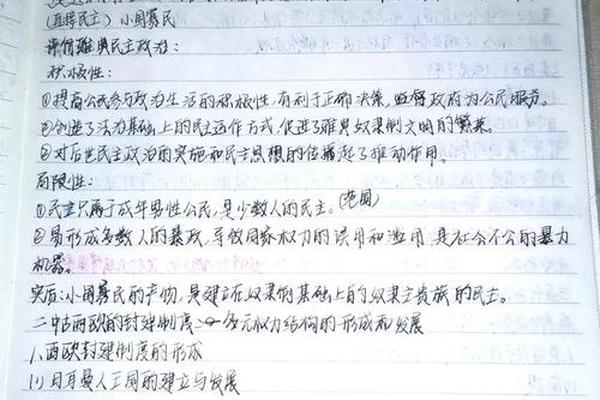 (直接民主) 小国寡民
评价雅典民主政治:
积极性:
①提高公民参与政治生活的积极性,有利于正确决策,监督政府为公民服务。
②创造了法治基础上的民主运作方式,促进了雅典奴隶制文明的繁荣。
③对后世民主政治的实施和民主思想的传播起了推动作用。
局限性:
①民主只属于成年男性公民,是少数人的民主。(范围)
②易形成多数人的暴政,导致国家权力的误用和滥用 是社会不公的暴力
机器。
实质:小国寡民的产物,是建立在奴隶制基础上的奴隶主贵族的民主。
二 中古西欧的封建制度 多元权力结构的形成和发展
1、西欧封建制度的形成
(1)日耳曼人王国的建立与发展